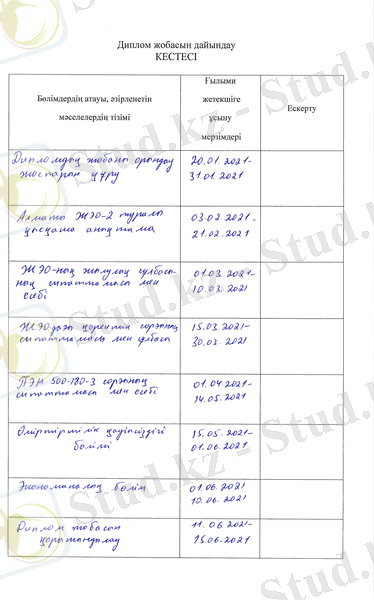 Диплом жобасын дайындау
КЕСТЕСІ
Бөлімдердің атауы, әзірленетін
мәселелердің тізімі
Ғылыми
жетекшіге
ұсыну
мерзімдері
Ескерту
Дипломдық жобаны орындау
жоспарын құру
20.01.2021-
31.01.2021
Алматы ЖЭО-2 туралы
қысқаша анықтама
03.02.2021-
21.02.2021
ЖЭО-ның жылулық сұлбасы-
ның сипаттамасы мен
есебі
01.03.2021-
10.03.2021
ЖЭОдағы қоректік сорғының
сипаттамасы мен сұлбасы
15.03.2021-
30.03.2021
ПЭН 500-180-3 сорғының
сипаттамасы мен есебі
01.04.2021-
14.05.2021
Өміртіршілік қауіпсіздігі
бөлімі
15.05.2021-
01.06.2021
Экономикалық бөлім
01.06.2021
10.06.2021
Диплом жобасын
қорытындылау
11.06.2021-
15.06.2021
Stud.kz - Stud.kz